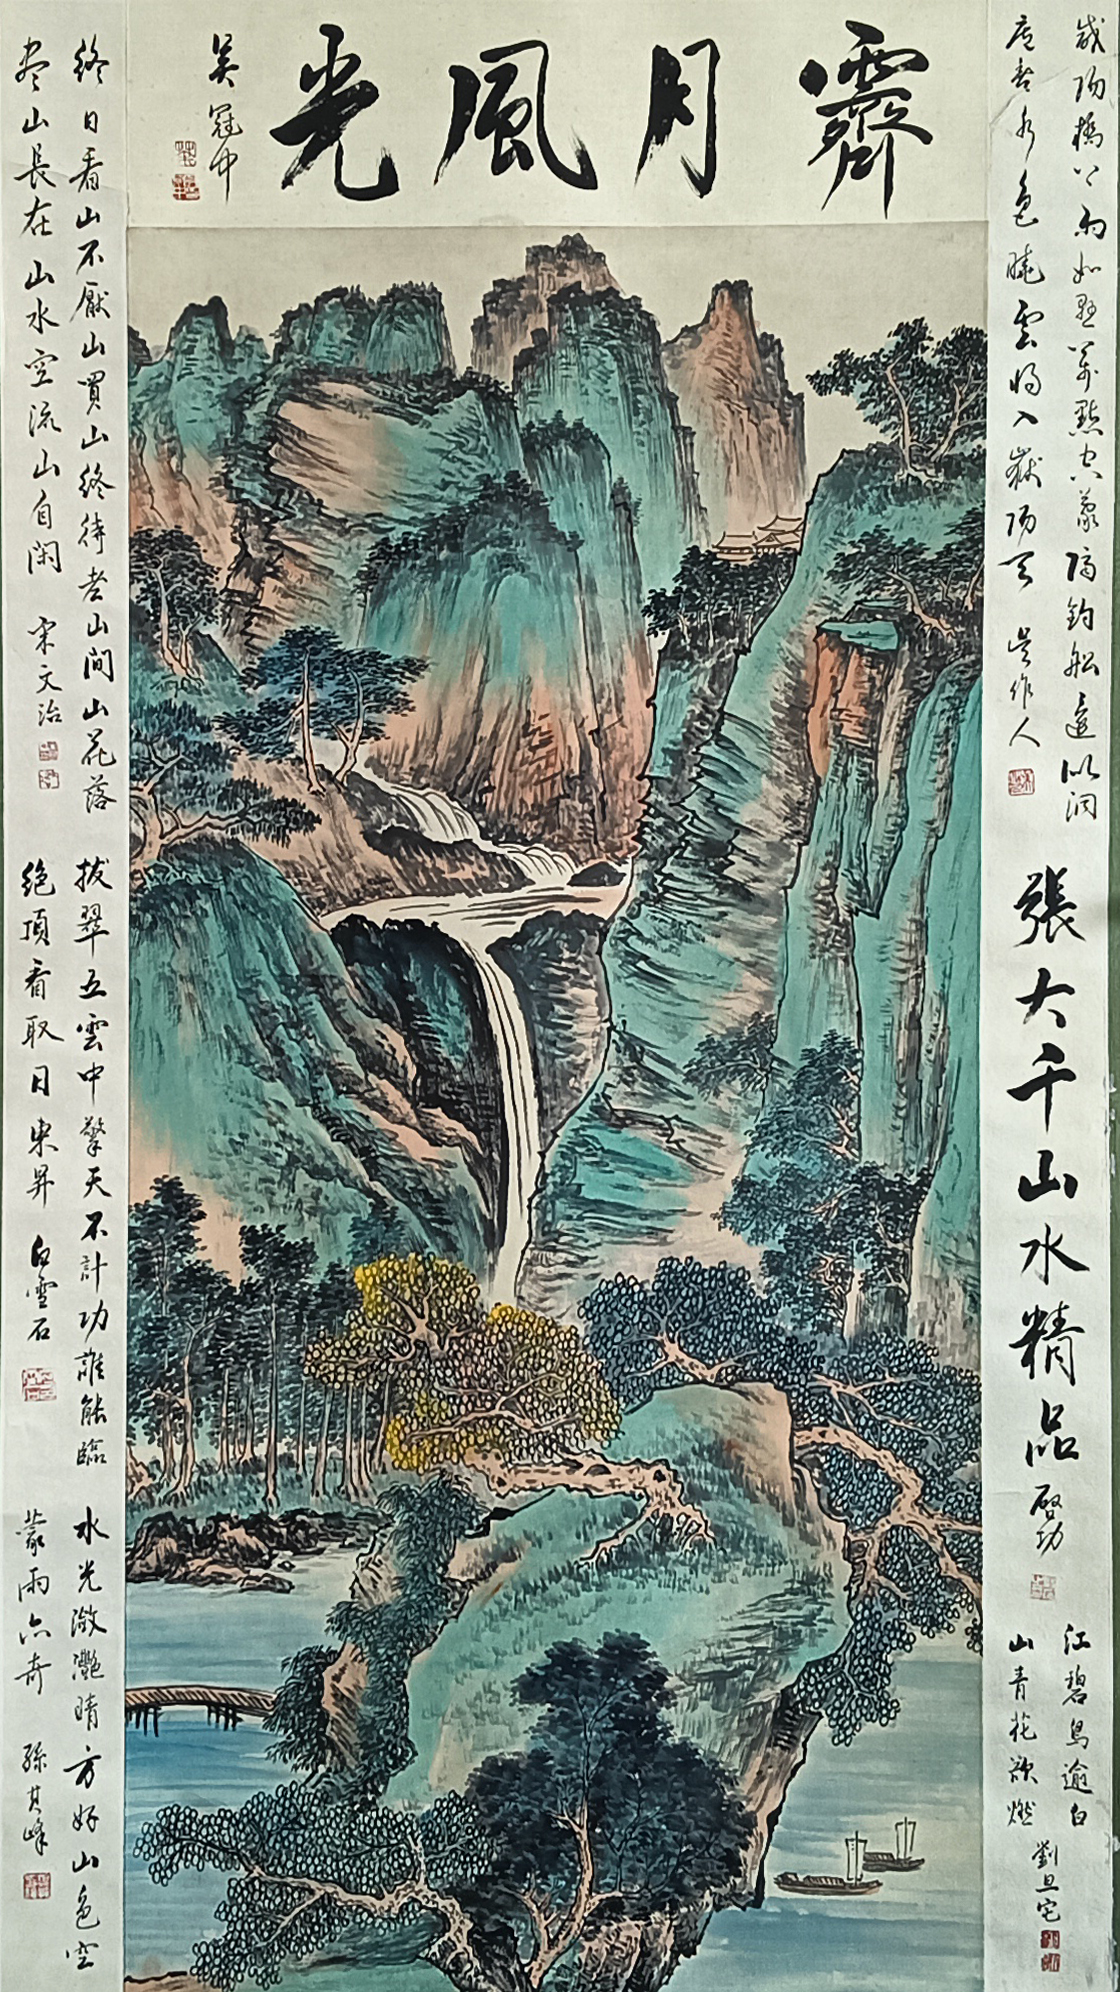 霽月風光
吳冠中
咸陽橋上雨如懸萬點空濛隔釣船還似洞
庭春水色曉雲將入嶽陽天
吴作人
張大千山水精品
啓功
江碧鳥逾白
山青花欲燃
劉旦宅
終日看山不厭山買山終待老山間山花落
尽山長在山水空流山自閑
宋文治
拔翠五雲中擎天不計功誰能臨
絕頂看取日東昇
白雪石
水光瀲灧晴方好山色空
濛雨亦奇
孫其峰